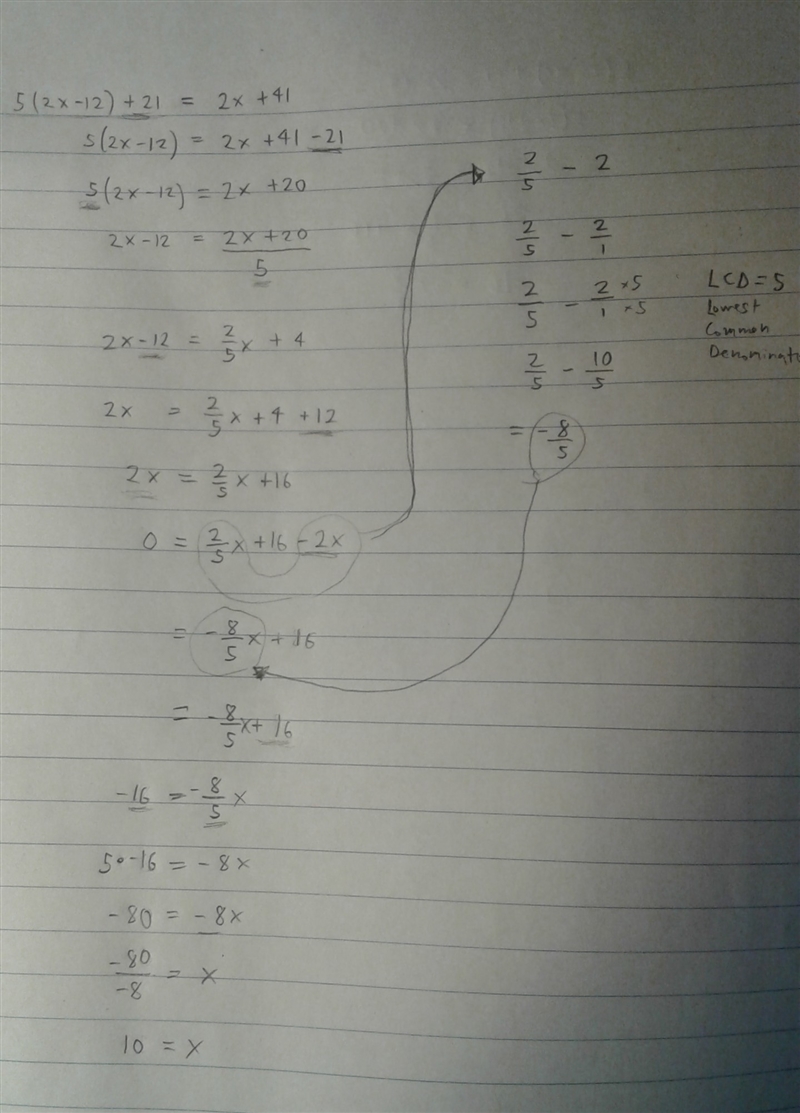 5(2x-12)+21 = 2x+41
5(2x-12) = 2x+41-21
5(2x-12) = 2x+20
2x-12 = 2x+20
5
2x-12 = 2/5 x + 4
2x = 2/5 x + 4 + 12
2x = 2/5 x + 16
0 = 2/5 x + 16 - 2x
= -8/5 x + 16
= -8/5 x + 16
-16 = -8/5 x
5•-16 = -8x
-80 = -8x
-80/-8 = x
10 = x
2/5 - 2
2/5 - 2/1
2/5 - 2/1 ×5 ×5
2/5 - 10/5
= -8/5
LCD = 5
Lowest
Common
Denominat